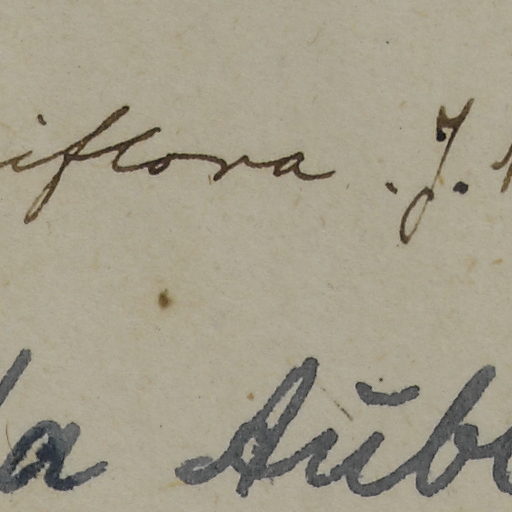 iflora . J.
a Aŭb